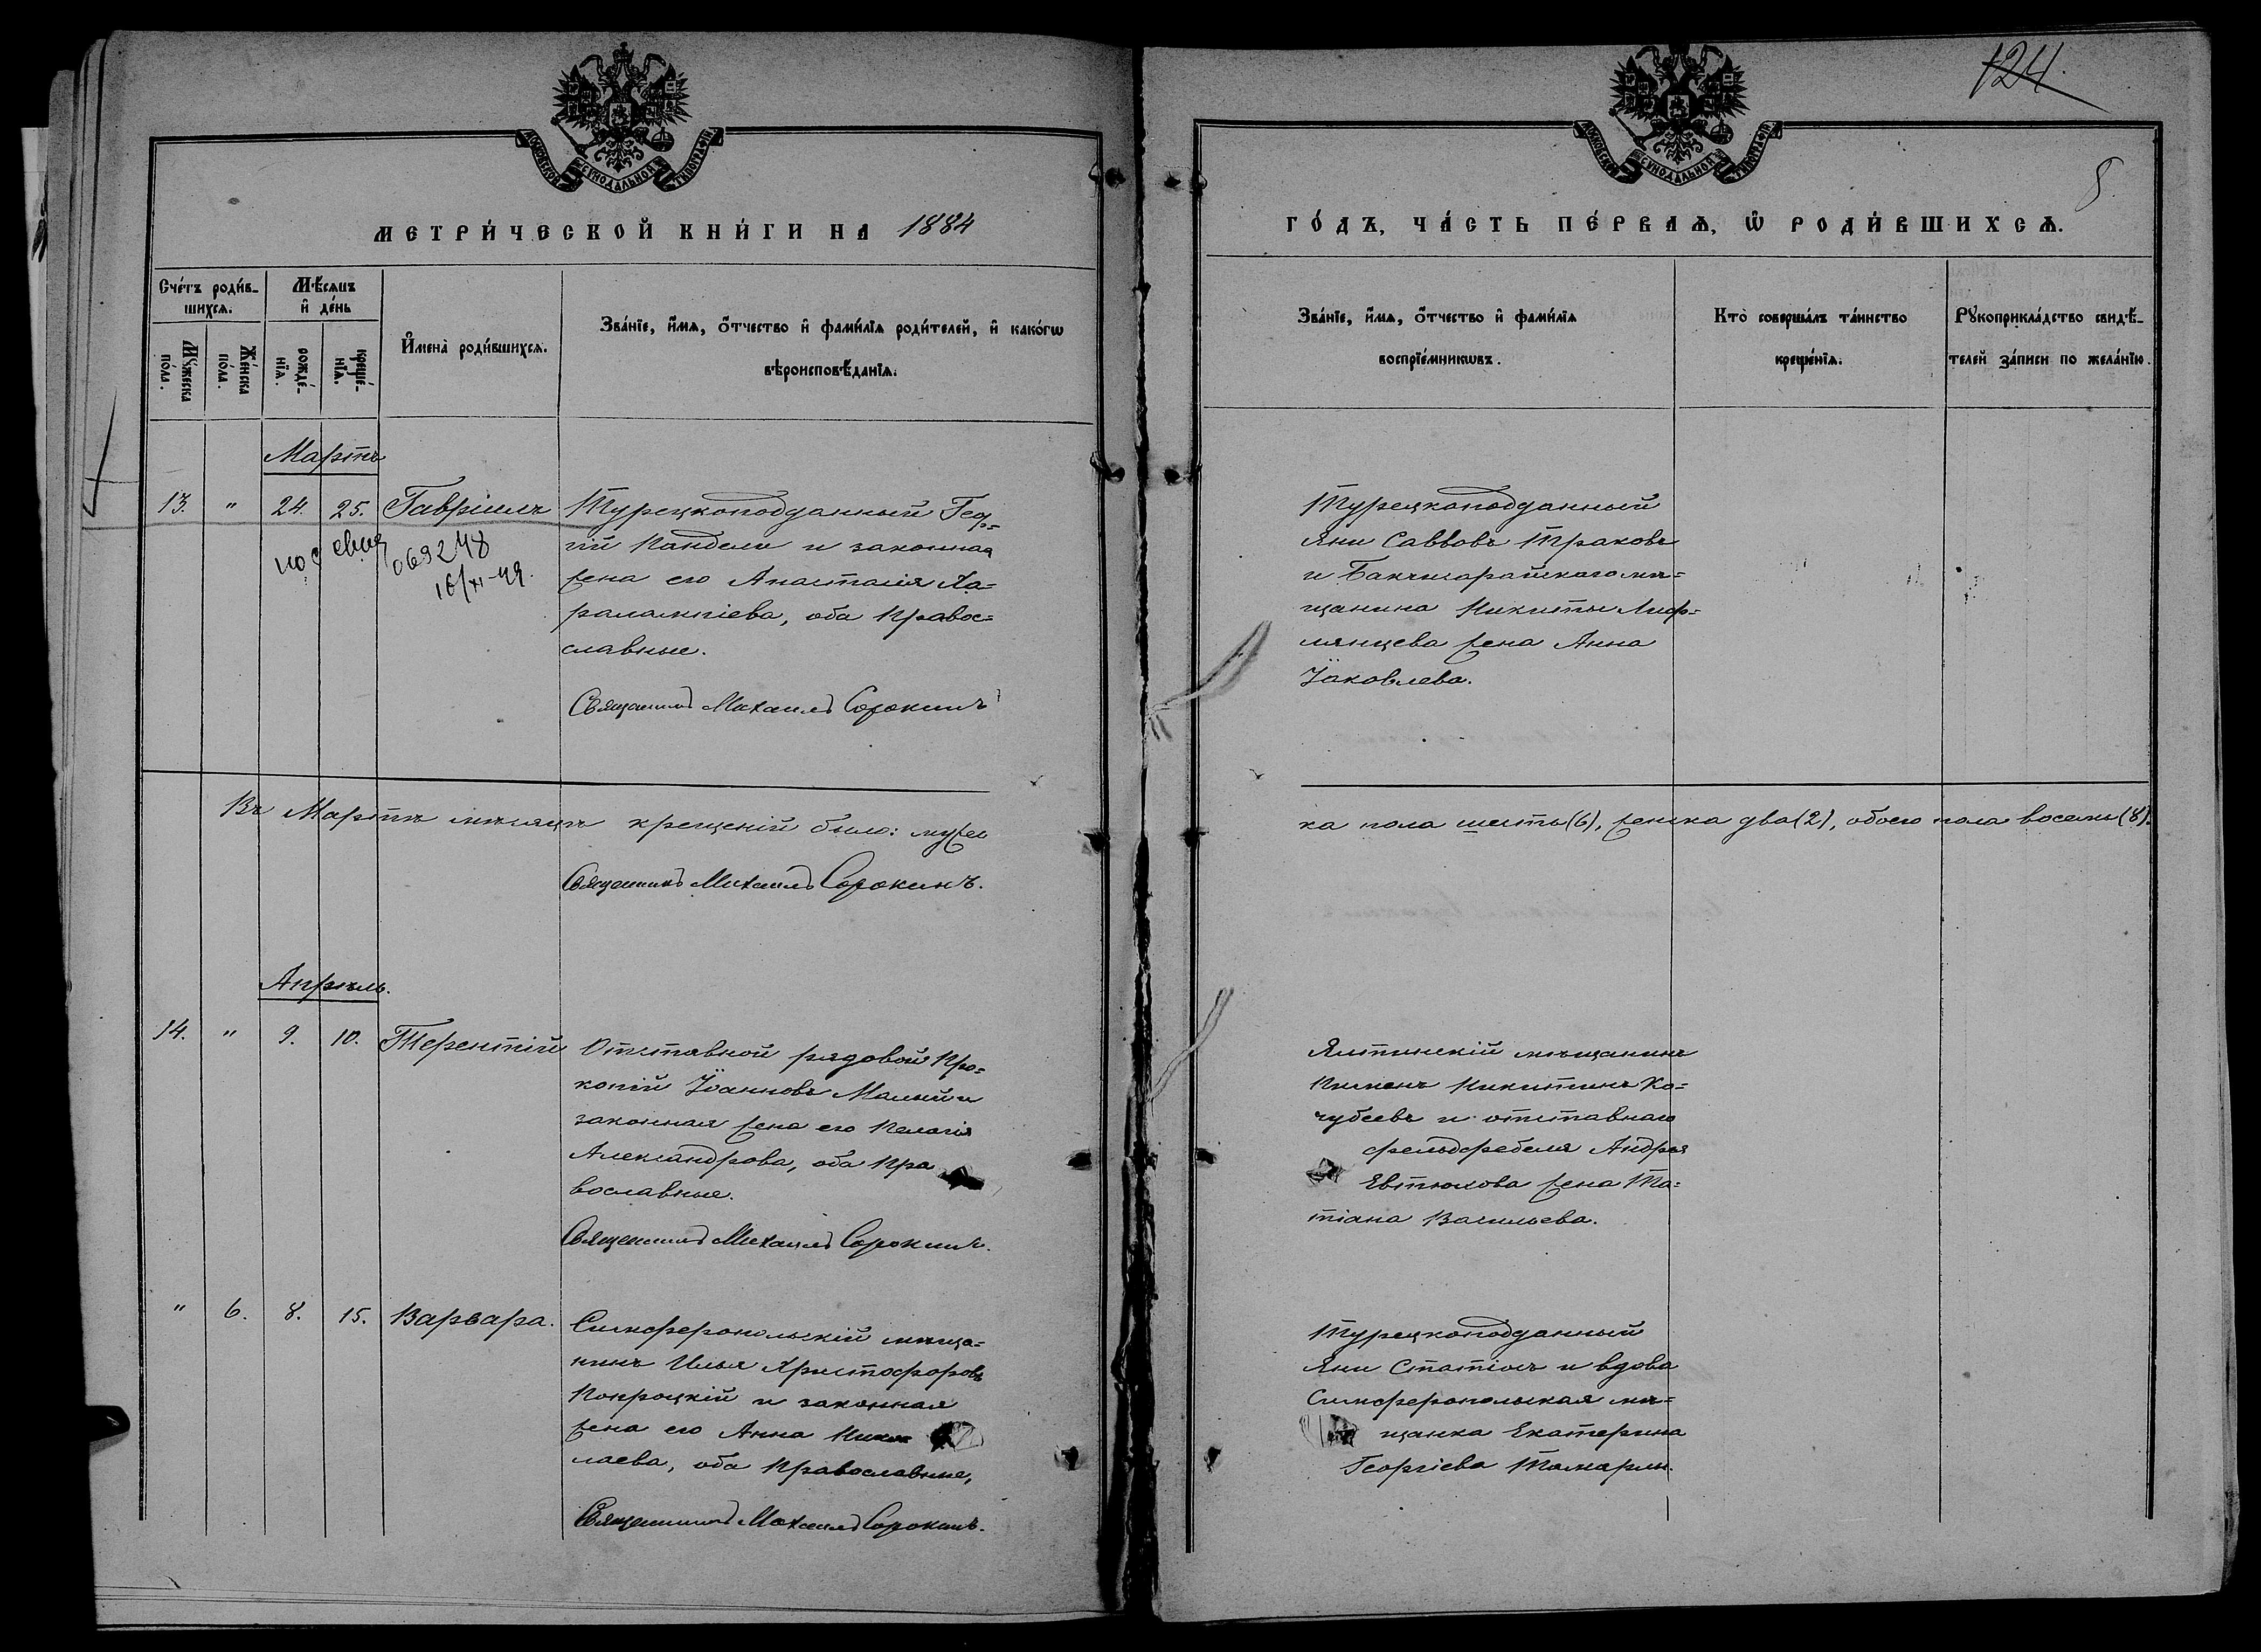 МОСКОВСКОЙ СѴНОДАЛЬНОЙ ТИПОГРАФІИ
МЕТРИ́ЧЕСКОЙ КНИ́ГИ НА 1884
Сче́тъ роди́в-
шихсѧ.
Мꙋ́жеска
по́ла.
Же́нска
по́ла.
Мѣ́сѧцъ
и҆ де́нь
рожде́-
нїѧ.
креще́-
нїѧ.
И҆мена̀ роди́вшихсѧ.
Зва́нїе, и҆́мѧ, ѻ҆́тчество и҆ фами́лїѧ роди́телей, и҆ како́гѡ
вѣроисповѣ́данїѧ.
Мартъ
13. " 24. 25. Гавріилъ
069248
16/XI-49.
Турецкоподданный Геор-
гій Пандели и законная
жена его Анастасія Ха-
ралампіева, оба Правос-
славные.
Священникъ Михаилъ Сорокинъ
Въ Мартѣ мѣсяцѣ крещеній было: мужес
Священникъ Михаилъ Сорокинъ.
Апрѣль.
14. " 9. 10. Терентій
Отставной рядовой Про-
копій Іоанновъ Малый и
законная жена его Пелагія
Александрова, оба Пра
вославные.
Священникъ Михаилъ Сорокинъ.
" 6. 8. 15. Варвара.
Симферопольскій мѣща-
нинъ Илья Христофоровъ
Покроцкій и законная
жена его Анна Нико-
лаева, оба Православные,
Священникъ Михаилъ Сорокинъ.
124.
МОСКОВСКОЙ СѴНОДАЛЬНОЙ ТИПОГРАФІИ
8
ГО́ДЪ, ЧА́СТЬ ПЕ́РВАѦ, Ѡ҆ РОДИ́ВШИХСѦ.
Зва́нїе, и҆́мѧ, ѻ҆́тчество и҆ фами́лїѧ
воспрїе́мникѡвъ.
Кто̀ соверша́лъ та́инство
креще́нїѧ.
Рꙋкоприкла́дство свидѣ́-
телей за́писи по жела́нїю.
Турецкоподданный
Яни Саввовъ Траковъ
и Бахчисарайскаго мѣ-
щанина Никиты Лиф-
лянцева жена Анна
Іаковлева.
ка пола шесть (6), женска два (2), обоего пола восемь (8).
Ялтинскій мѣщанинъ
Пименъ Никитинъ Ко-
чубеевъ и отставнаго
фельдфебеля Андрея
Евтюхова жена Та-
тіана Васильева.
Турецкоподданный
Яни Статіосъ и вдова
Симферопольская мѣ-
щанка Екатерина
Георгіева Тамарли.